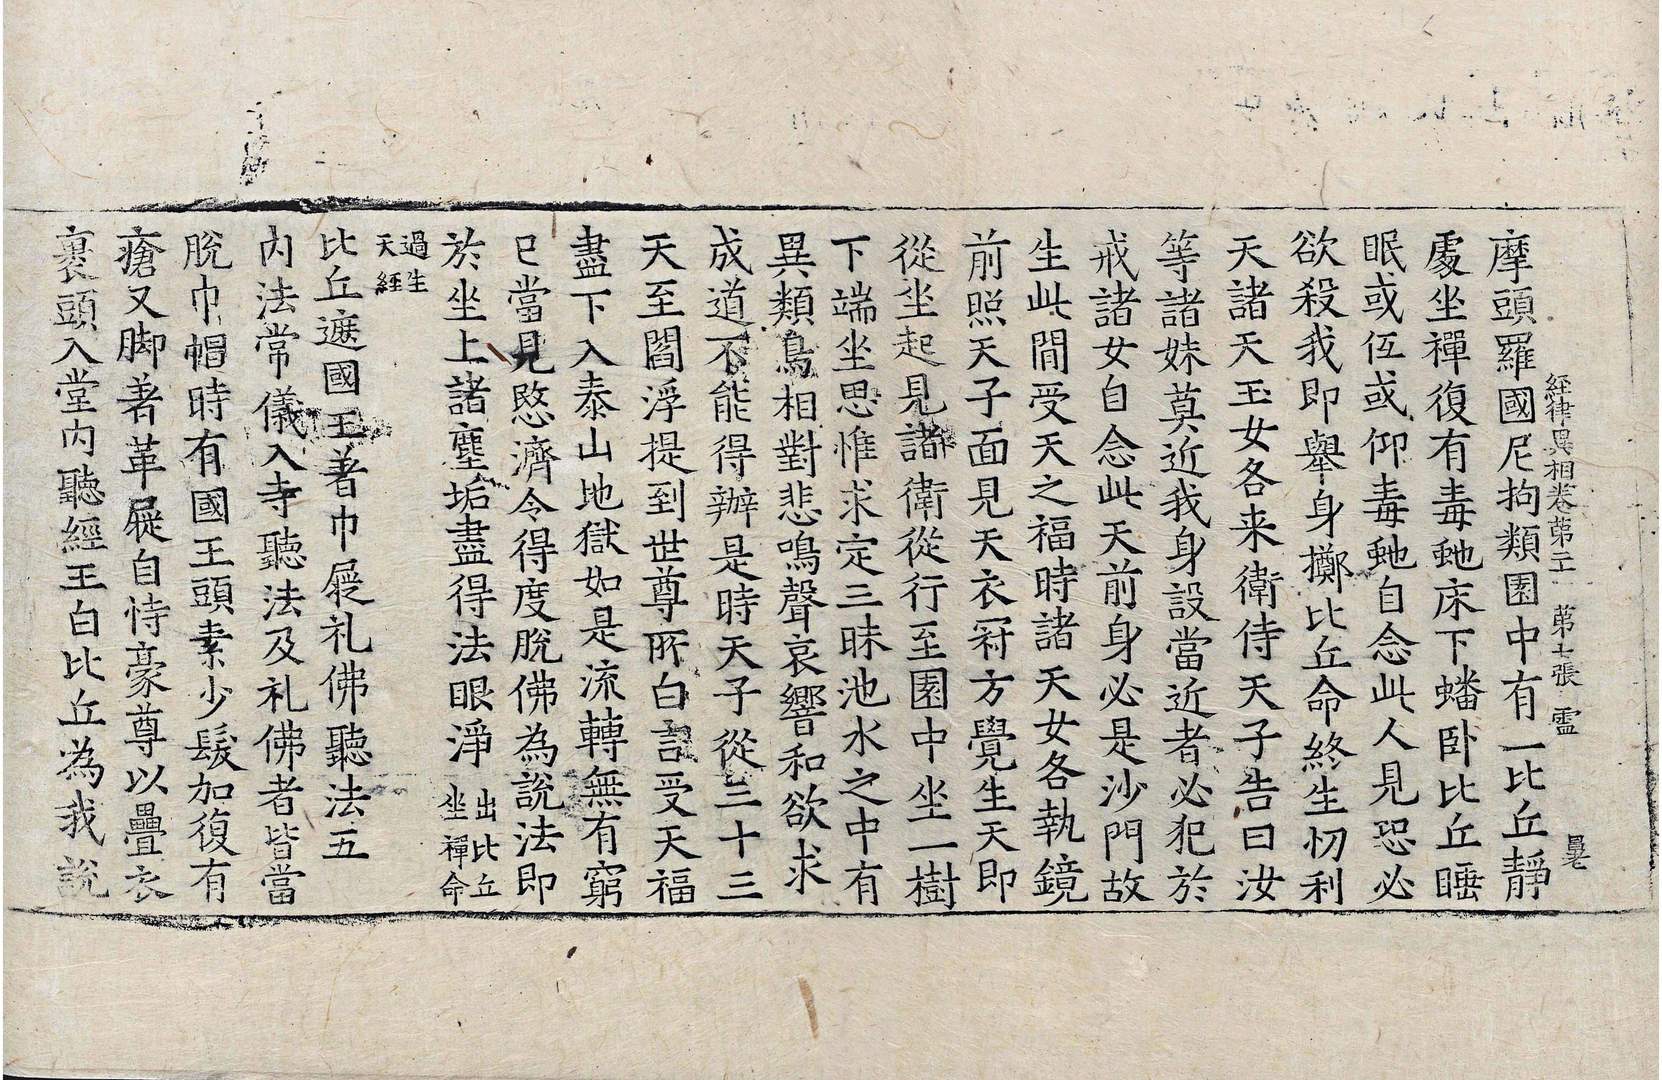 經律異相卷第二 第七張 霊
摩頭羅國尼拘類園中有一比丘靜
處坐禪復有毒虵床下蟠卧比丘睡
眠或伍或仰毒虵自念此人見恐必
欲殺我即舉身擲比丘命終生忉利
天諸天玉女各来衛侍天子告曰汝
等諸妹莫近我身設當近者必犯於
戒諸女自念此天前身必是沙門故
生此間受天之福時諸天女各執鏡
前照天子面見天衣冠方覺生天即
從坐起見諸衛從行至園中坐一樹
下端坐思惟求定三昧池水之中有
異類鳥相對悲鳴聲哀響和欲求
成道不能得辦是時天子從三十三
天至閻浮提到世尊所白言受天福
盡下入泰山地獄如是流轉無有窮
已當見愍濟令得度脫佛為說法即
於坐上諸塵垢盡得法眼淨 出比丘
坐禪命
過生
天經
比丘遮國王著巾屣礼佛聽法五
內法常儀入寺聽法及礼佛者皆當
脫巾帽時有國王頭素少髮加復有
瘡又脚著革屣自恃豪尊以疊衣
裹頭入堂內聽經王白比丘為我說